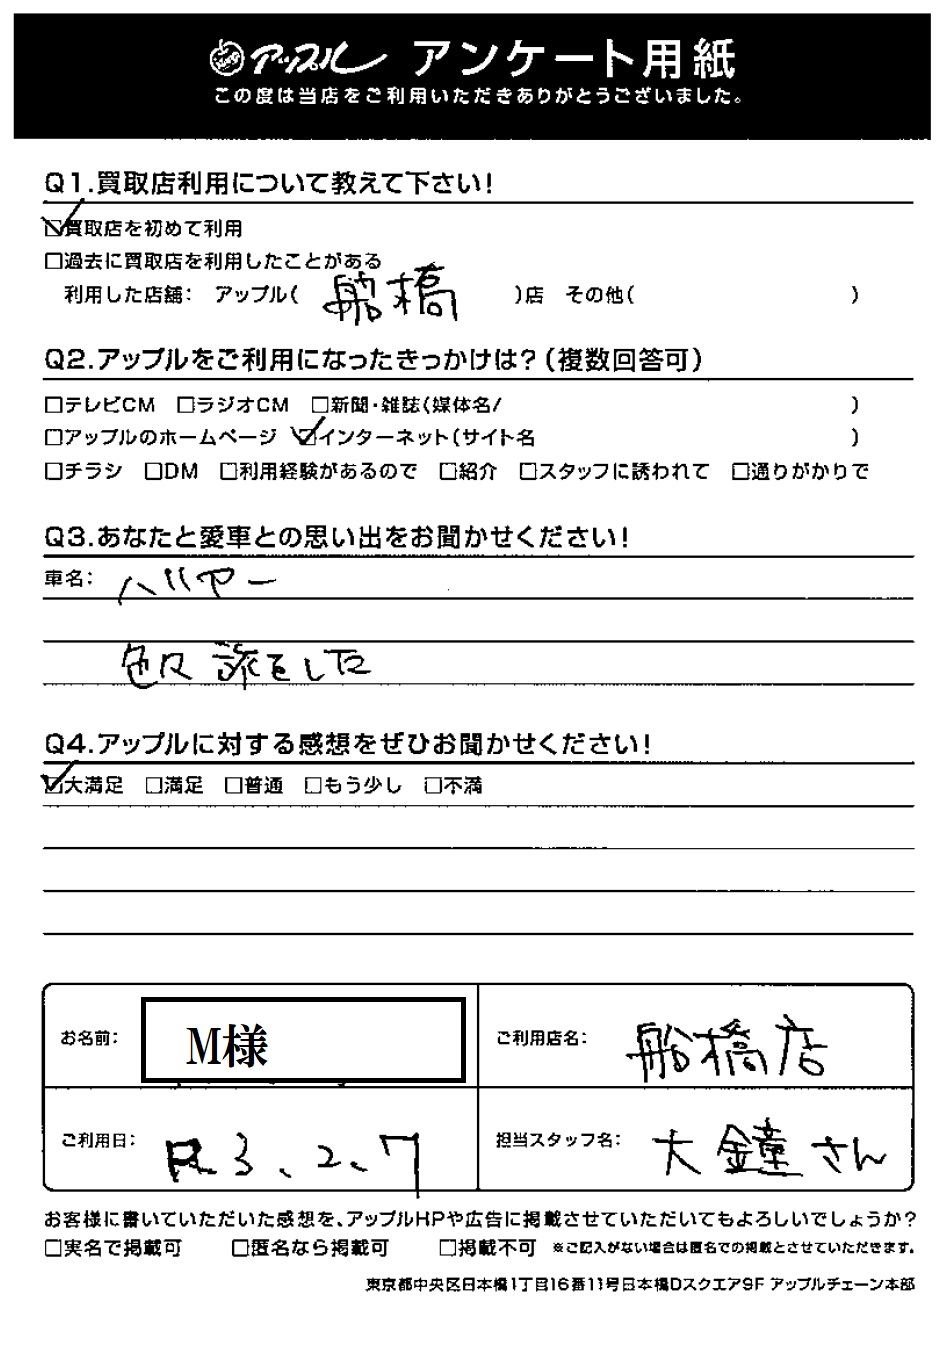 アップル アンケート用紙
この度は当店をご利用いただきありがとうございました。
Q1.買取店利用について教えて下さい!
☑買取店を初めて利用
□過去に買取店を利用したことがある
利用した店舗: アップル( 船橋 )店 その他( )
Q2.アップルをご利用になったきっかけは?(複数回答可)
□テレビCM □ラジオCM □新聞・雑誌(媒体名/ )
□アップルのホームページ ☑インターネット(サイト名 )
□チラシ □DM □利用経験があるので □紹介 □スタッフに誘われて □通りがかりで
Q3.あなたと愛車との思い出をお聞かせください!
車名: ハリヤー
色々 旅をした
Q4.アップルに対する感想をぜひお聞かせください!
☑大満足 □満足 □普通 □もう少し □不満
お名前: M様 ご利用店名: 船橋店
ご利用日: R3、2、7 担当スタッフ名: 大鐘さん
お客様に書いていただいた感想を、アップルHPや広告に掲載させていただいてもよろしいでしょうか?
□実名で掲載可 □匿名なら掲載可 □掲載不可 ※ご記入がない場合は匿名での掲載とさせていただきます。
東京都中央区日本橋1丁目16番11号日本橋Dスクエア9F アップルチェーン本部